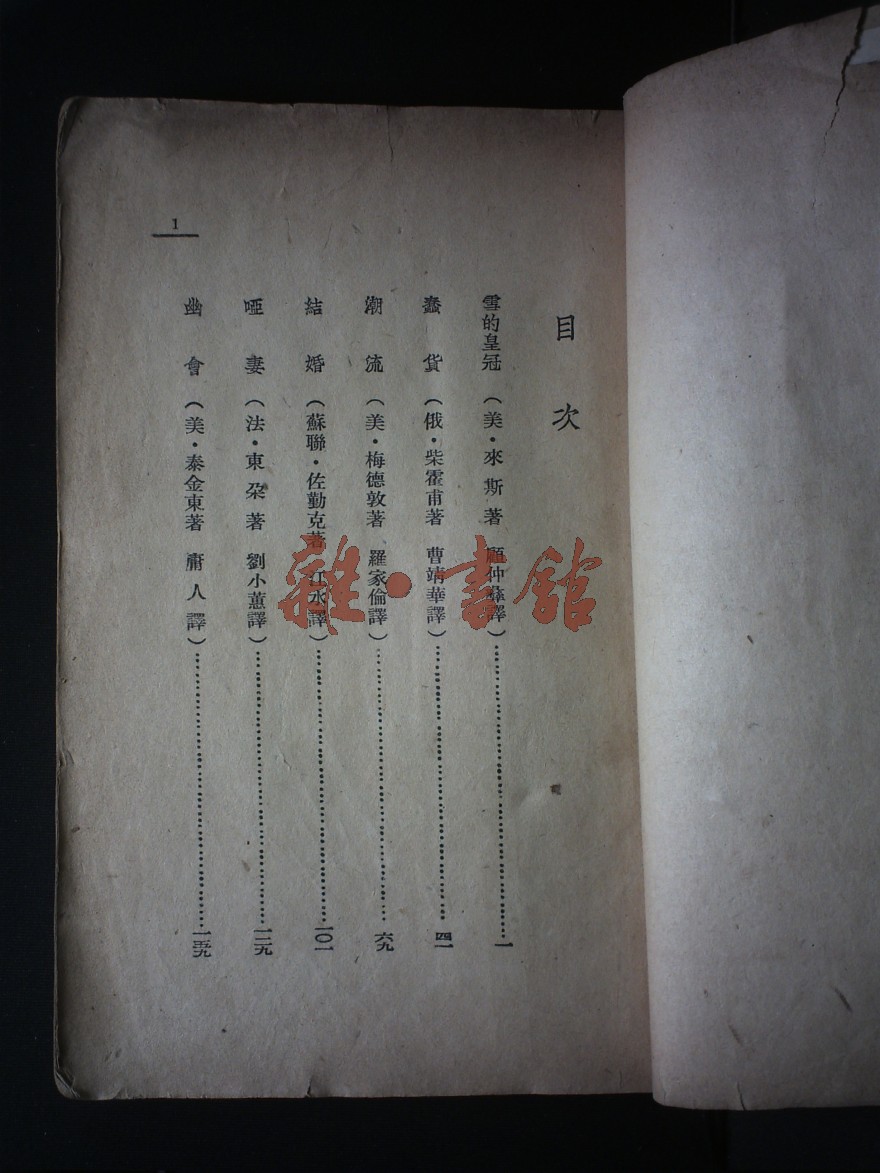 目次
雪的皇冠（美·來斯著 顧仲彝譯）……一
蠢貨（俄·柴霍甫著 曹靖華譯）……四一
潮流（美·梅德敦著 羅家倫譯）……六九
結婚（蘇聯·佐勤克著 江水譯）……一〇一
啞妻（法·東朶著 劉小蕙譯）……一二九
幽會（美·泰金東著 庸人譯）……一五九
1
雜·書館